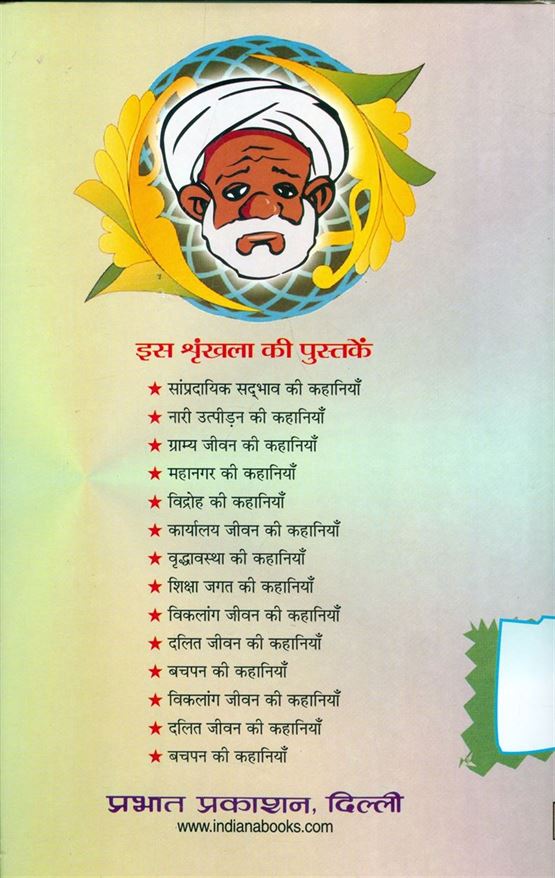 इस श्रृंखला की पुस्तकें
★ सांप्रदायिक सद्‌भाव की कहानियाँ
★ नारी उत्पीड़न की कहानियाँ
★ ग्राम्य जीवन की कहानियाँ
★ महानगर की कहानियाँ
★ विद्रोह की कहानियाँ
★ कार्यालय जीवन की कहानियाँ
★ वृद्धावस्था की कहानियाँ
★ शिक्षा जगत की कहानियाँ
★ विकलांग जीवन की कहानियाँ
★ दलित जीवन की कहानियाँ
★ बचपन की कहानियाँ
★ विकलांग जीवन की कहानियाँ
★ दलित जीवन की कहानियाँ
★ बचपन की कहानियाँ
प्रभात प्रकाशन, दिल्ली
www.indianabooks.com